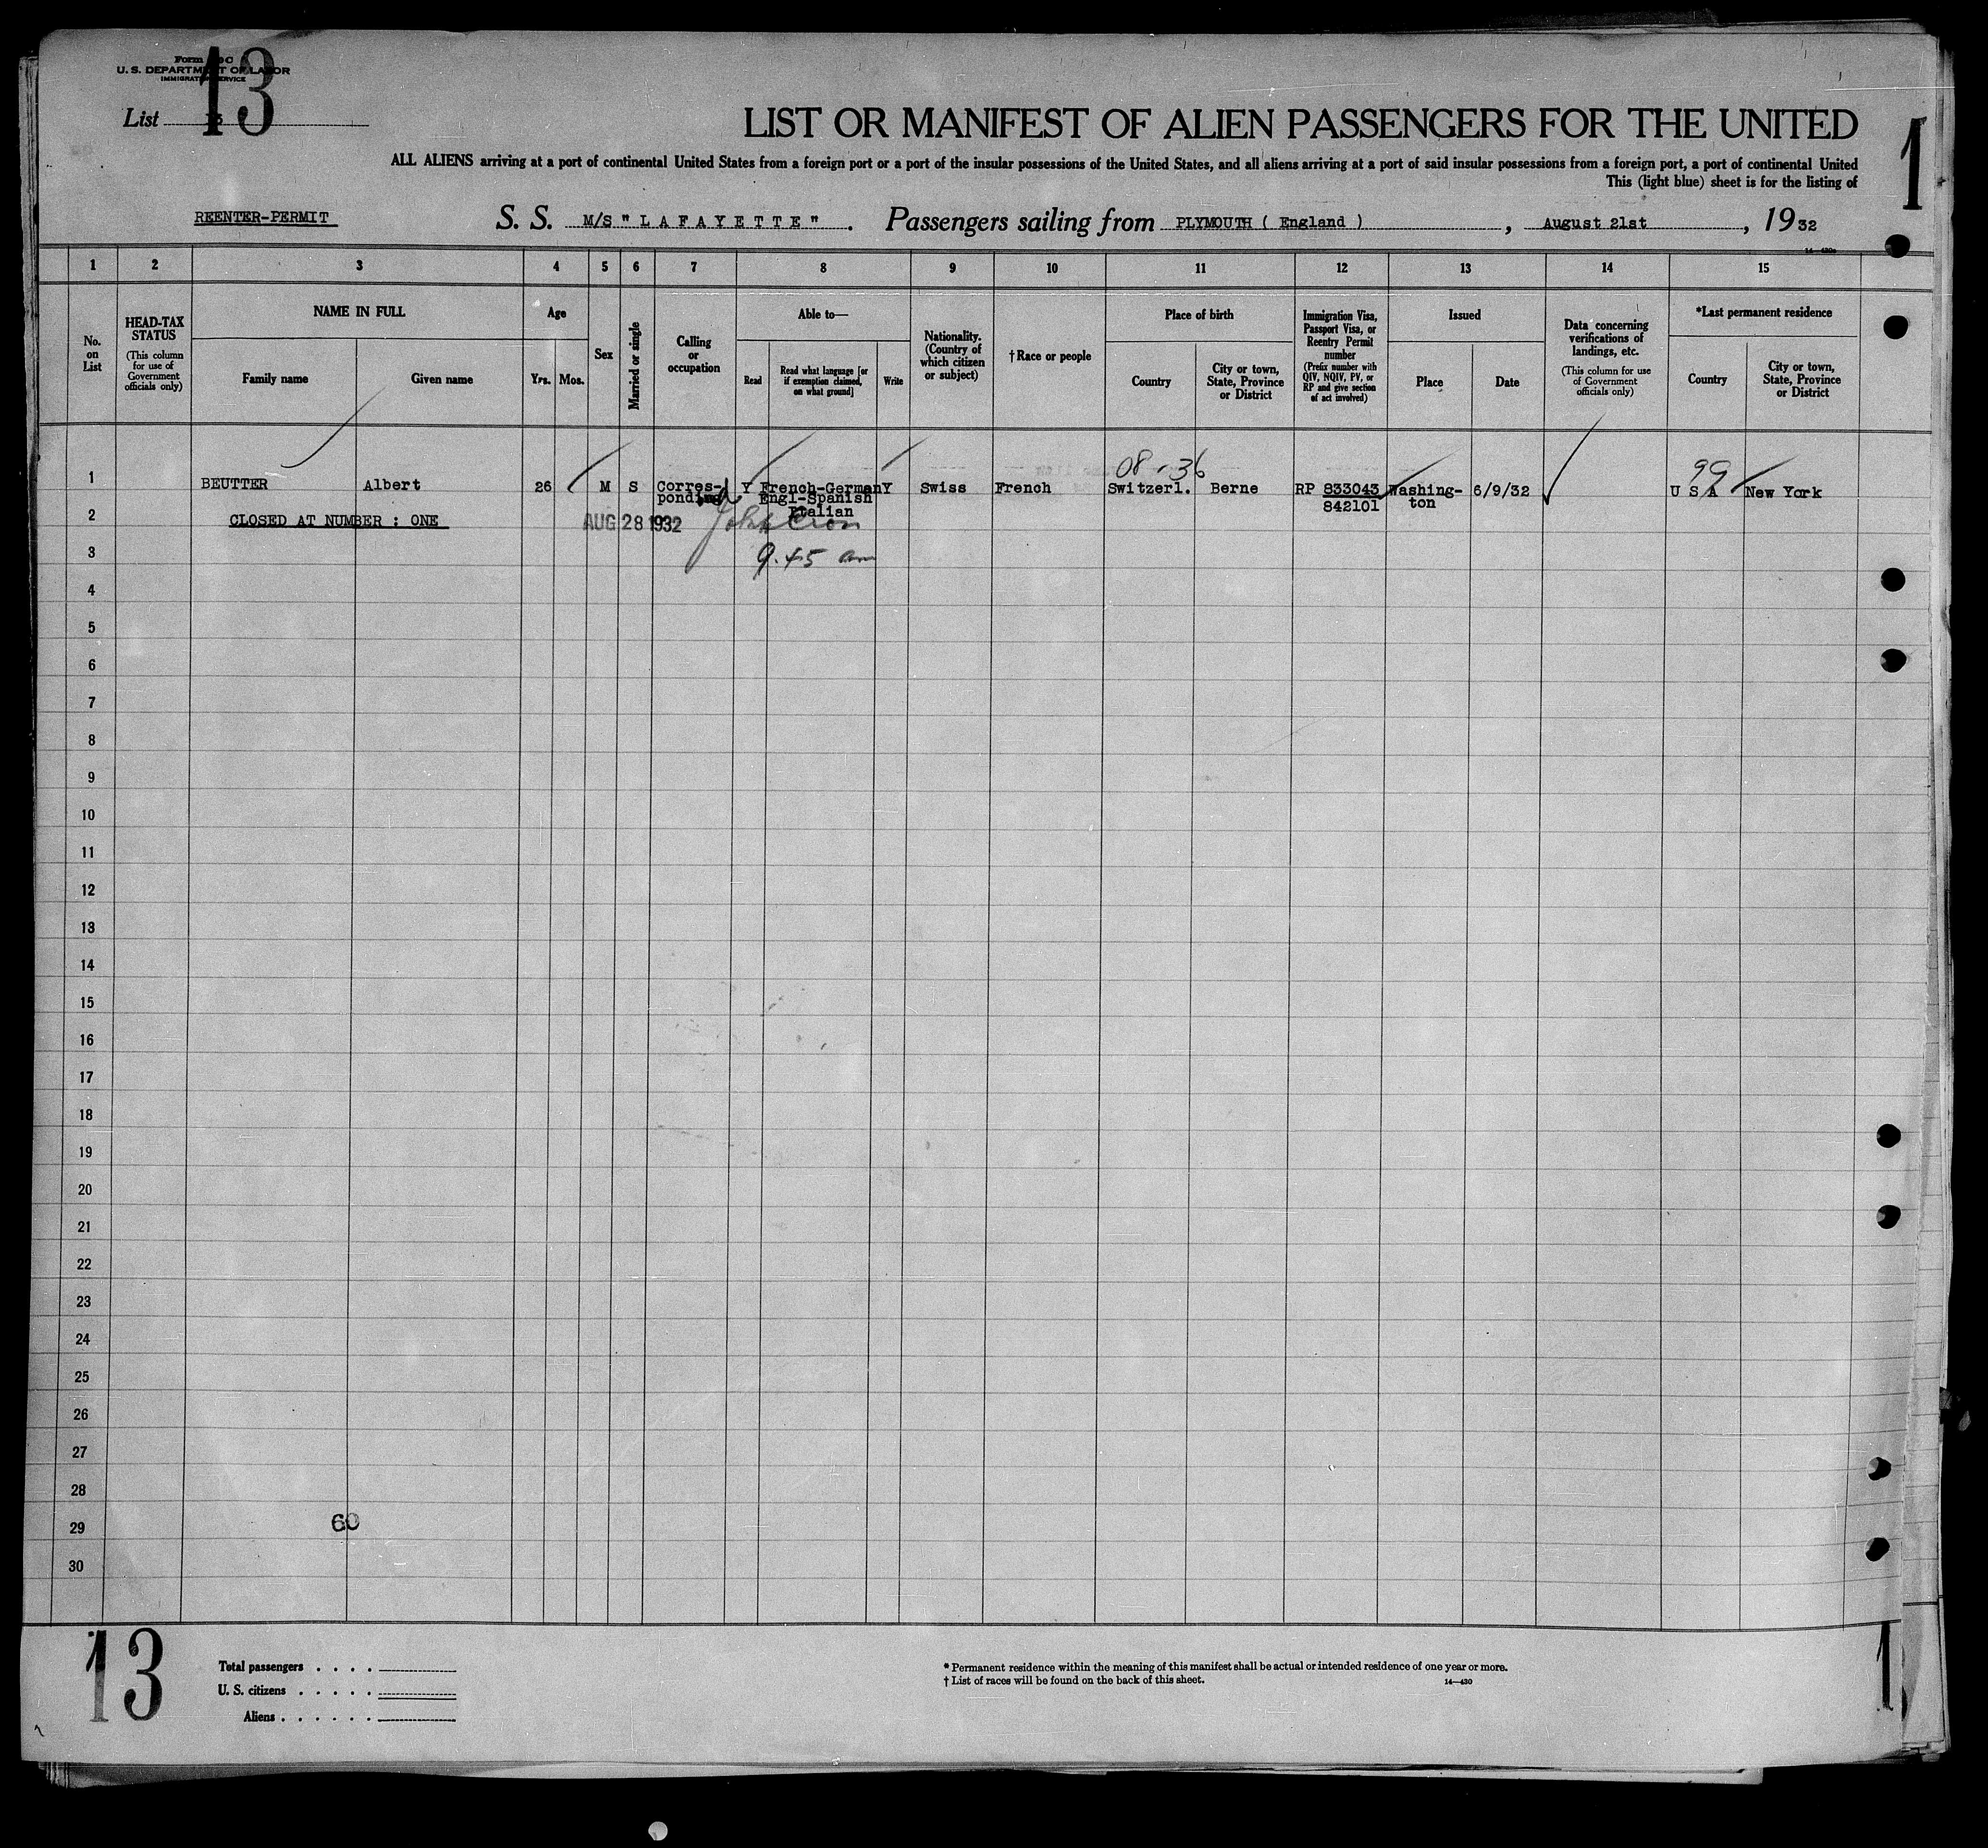 U. S. DEPARTMENT OF LABOR
IMMIGRATION SERVICE
List 13
LIST OR MANIFEST OF ALIEN PASSENGERS FOR THE UNITED
ALL ALIENS arriving at a port of continental United States from a foreign port or a port of the insular possessions of the United States, and all aliens arriving at a port of said insular possessions from a foreign port, a port of continental United
This (light blue) sheet is for the listing of
1
REENTER-PERMIT
S. S. M/S " L A F A Y E T T E " . Passengers sailing from PLYMOUTH ( England ) , August 21st , 19 32
1 2 3 4 5 6 7 8 9 10 11 12 13 14 15
No. on List
HEAD-TAX STATUS
(This column for use of Government officials only)
NAME IN FULL
Family name
Given name
Age
Yrs. Mos.
Sex
Married or single
Calling or occupation
Able to—
Read
Read what language [or if exemption claimed, on what ground]
Write
Nationality. (Country of which citizen or subject)
†Race or people
Place of birth
Country
City or town, State, Province or District
Immigration Visa, Passport Visa, or Reentry Permit number
(Prefix number with QIV, NQIV, PV, or RP and give section of act involved)
Issued
Place
Date
Data concerning verifications of landings, etc.
(This column for use of Government officials only)
*Last permanent residence
Country
City or town, State, Province or District
08 - 36
99
1 BEUTTER Albert 26 M S Corres- Y French-German Y Swiss French Switzerl. Berne RP 833043 Washing- 6/9/32 U S A New York
Engl-Spanish 842101 ton
Italian
2 CLOSED AT NUMBER : ONE AUG 28 1932
3 9.45 am
4
5
6
7
8
9
10
11
12
13
14
15
16
17
18
19
20
21
22
23
24
25
26
27
28
29 60
30
13
Total passengers . . . .
U. S. citizens . . . . .
Aliens . . . . . .
* Permanent residence within the meaning of this manifest shall be actual or intended residence of one year or more.
† List of races will be found on the back of this sheet.
14—430
1